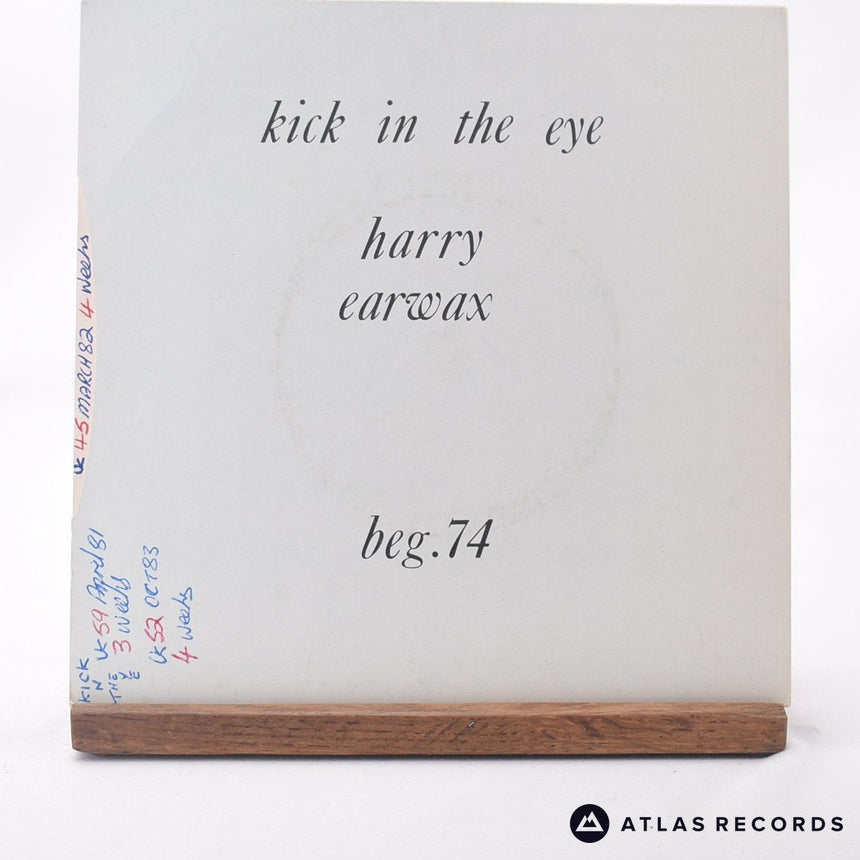 kick in the eye
harry
earwax
beg.74
UK 45 MARCH 82 4 weeks
KICK
IN UK 59 April 81
THE 3 weeks
EYE
UK 52 OCT 83
4 weeks
ATLAS RECORDS